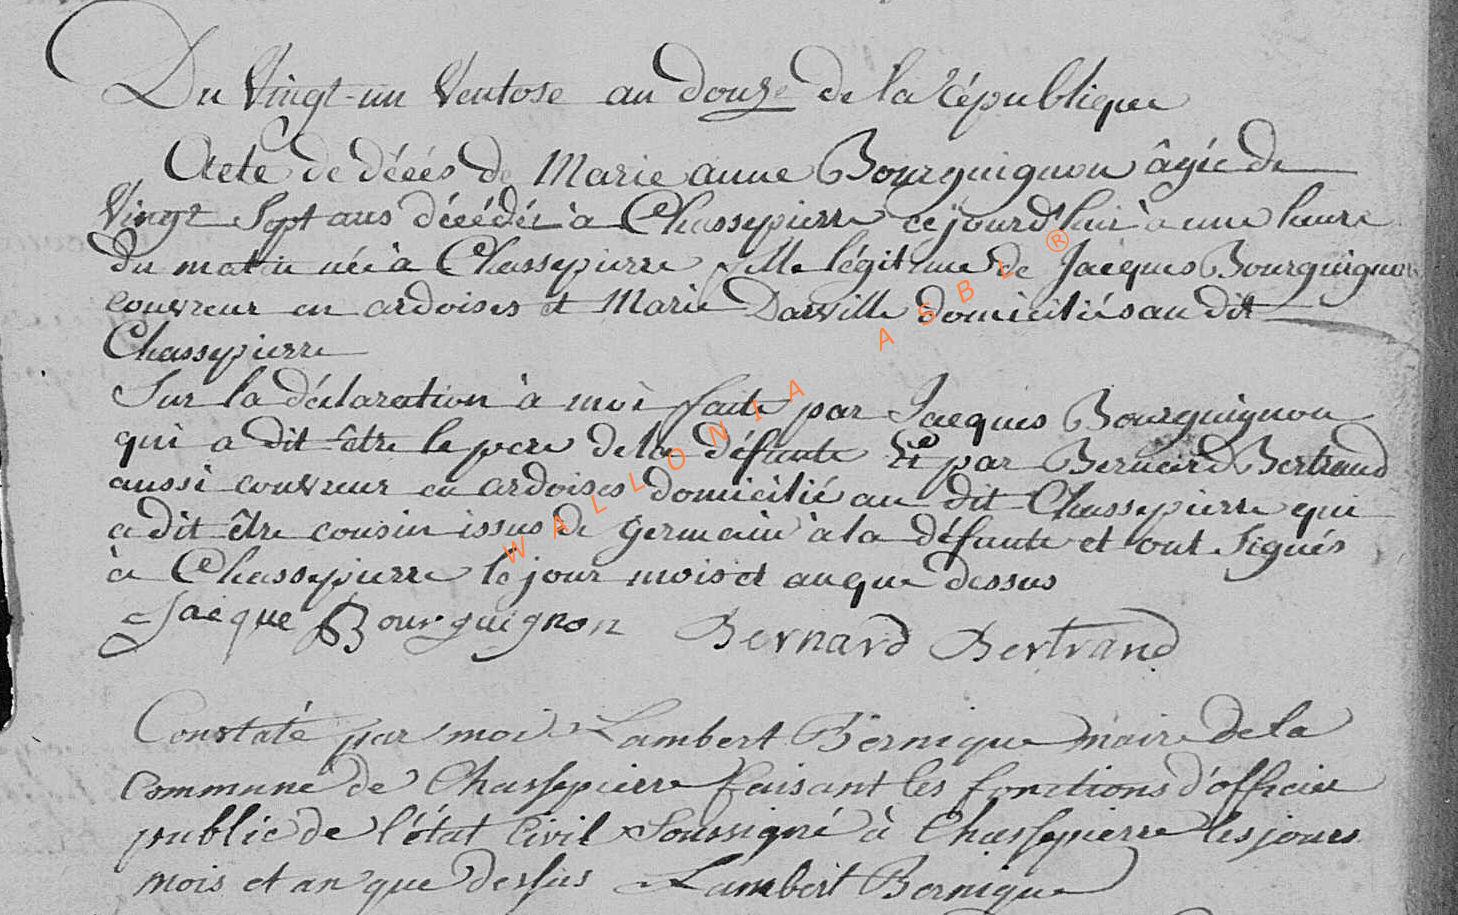 Du Vingt-un Ventose an douze de la république
Acte de décés de Marie anne Bourguignon âgée de
Vingt Sept ans décédée à Chassepierre cejourd'hui à une heure
du matin née à Chassepierre fille légitime de Jacques Bourguignon
couvreur en ardoises et Marie Darville domiciliés au dit
Chassepierre
Sur la déclaration à moi faite par Jacques Bourguignon
qui a dit être le pere de la défunte Et par Bernard Bertrand
aussi couvreur en ardoises domicilié au dit Chassepierre qui
a dit être cousin issus de germain à la défunte et ont signés
à Chassepierre le jour mois et an que dessus
Jacque Bourguignon Bernard Bertrand
Constaté par moi Lambert Bernique maire de la
commune de Chassepierre faisant les fonctions d'officier
public de l'état Civil Soussigné à Chassepierre les jours
mois et an que dessus Lambert Bernique
WALLONIA ASBL ®